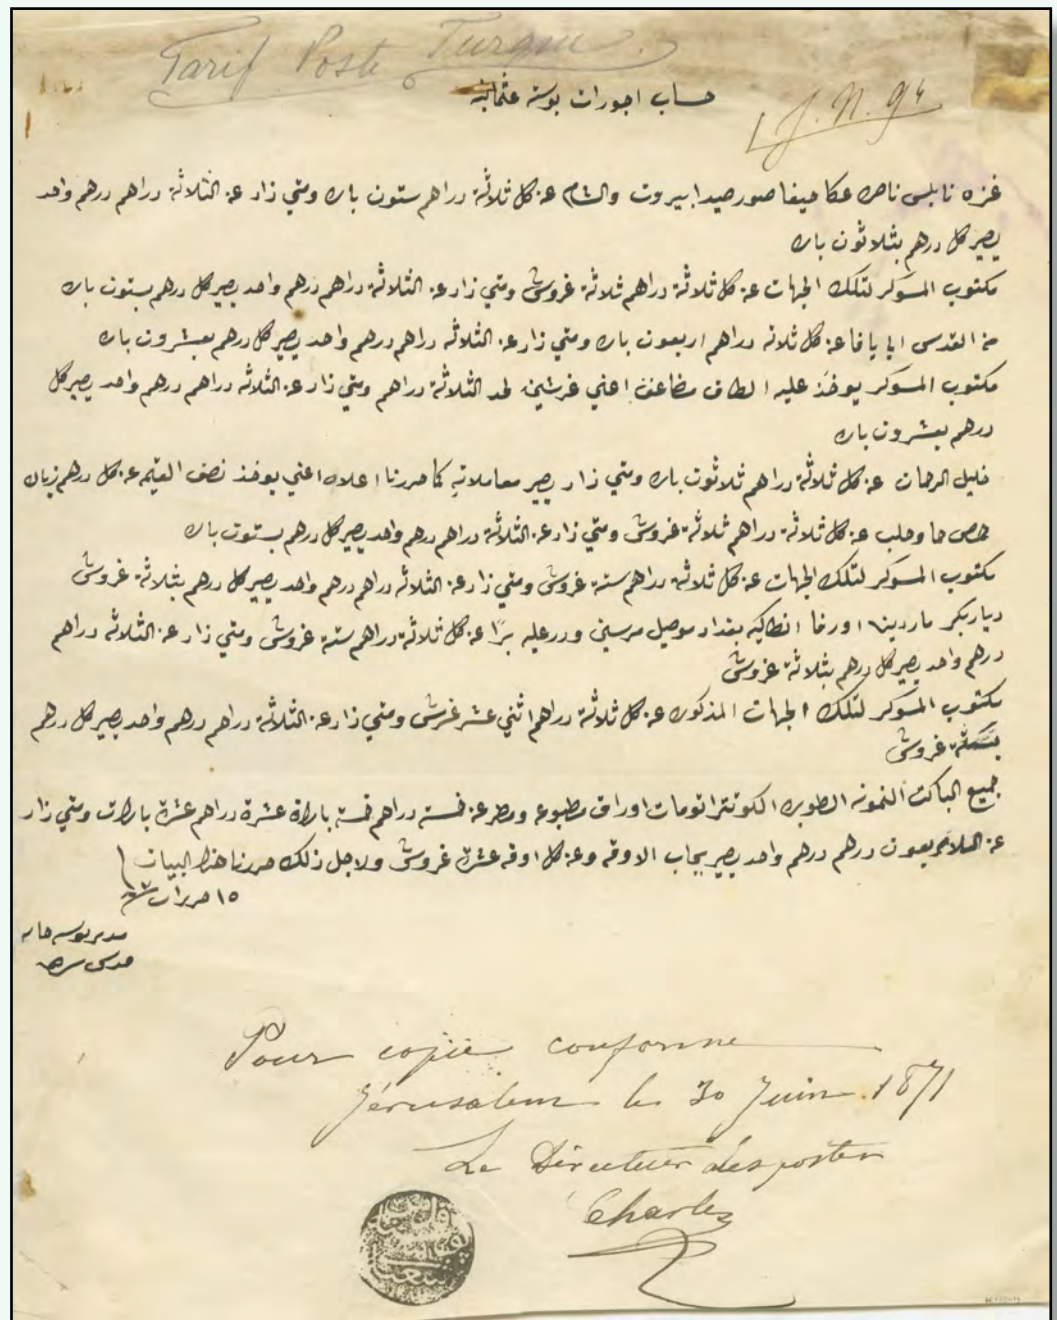 Tarif Poste Turque.
حساب اجورات بوسته عثمانيه
J. N. 94
غزه نابلس ناصره عكا حيفا صور صيدا بيروت والشام عن كل ثلاثة دراهم ستون باره ومتي زاد عن الثلاثة دراهم درهم واحد
يصير كل درهم بثلاثون باره
مكتوب المسوكر لتلك الجهات عن كل ثلاثة دراهم ثلاثة غروش ومتي زاد عن الثلاثة دراهم درهم واحد يصير كل درهم بستون باره
من القدس الي يافا عن كل ثلاثه دراهم اربعون باره ومتي زاد عن الثلاثه دراهم درهم واحد يصير كل درهم بعشرون باره
مكتوب المسوكر يوخذ عليه مضاعف اعني غرشين لحد الثلاثة دراهم ومتي زاد عن الثلاثه دراهم درهم واحد يصير كل
درهم بعشرون باره
خليل الرحمان عن كل ثلاثة دراهم ثلاثون باره ومتي زاد يصير معاملاته كما حررنا اعلاه اعني يوخذ نصف القيمه عن كل درهم زياده
حمص حما وحلب عن كل ثلاثة دراهم ثلاثة غروش ومتي زاد عن الثلاثة دراهم درهم واحد يصير كل درهم بستون باره
مكتوب المسوكر لتلك الجهات عن كل ثلاثة دراهم ستة غروش ومتي زاد عن الثلاثه دراهم درهم واحد يصير كل درهم بثلاثة غروش
دياربكر ماردين اورفا انطاكيه بغداد موصل مرسين برًا عن كل ثلاثة دراهم ستة غروش ومتي زاد عن الثلاثه دراهم
درهم واحد يصير كل درهم بثلاثة غروش
مكتوب المسوكر لتلك الجهات المذكوره عن كل ثلاثة دراهم اثني عشر غرش ومتي زاد عن الثلاثة دراهم درهم واحد يصير كل درهم
غروش
جميع الباكت النمونه اوراق مطبوعه عن خمسة دراهم خمسة بارات عشرة دراهم عشرة بارات ومتي زاد
عن درهم درهم واحد يصير بحساب الاوقه وعن كل اوقه عشرة غروش ولاجل ذلك حررنا هذا البيان
١٥ حزيران
مدير بوسته خانه
قدس شريف
Pour copie conforme
Jérusalem le 30 Juin 1871
Le Directeur des postes
Charles